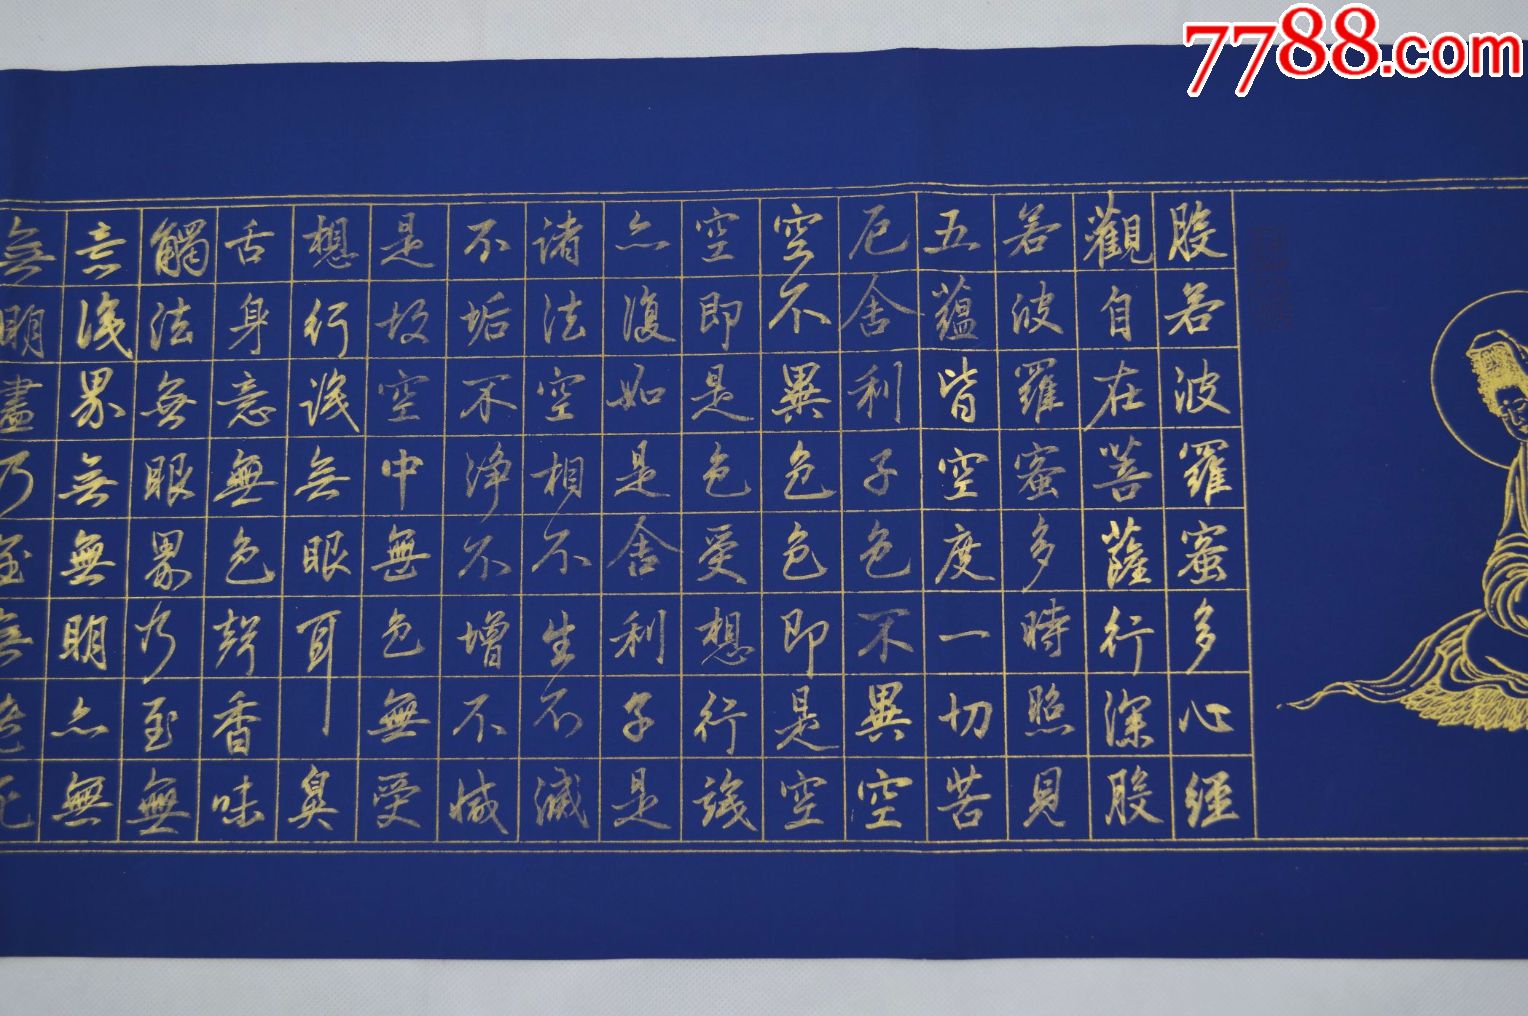 7788.com
般若波羅蜜多心經
觀自在菩薩行深般
若波羅蜜多時照見
五蘊皆空度一切苦
厄舍利子色不異空
空不異色色即是空
空即是色受想行識
亦復如是舍利子是
諸法空相不生不滅
不垢不淨不增不減
是故空中無色無受
想行識無眼耳鼻
舌身意無色聲香味
觸法無眼界乃至無
意識界無無明亦無
無明盡乃至無老死